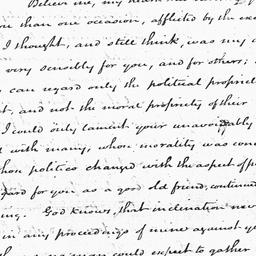 Believe me, my
than on one occasion, afflicted by the
I thought, and still think, was my
very sensibly for you, and for others;
can regard only the political propriet
and not the moral propriety of their
I could only lament your unavoidably
with many, whose morality was con
whose politics changed with the aspect of
for you as a good old friend, continued
ing. God knows, that inclination nev
in any proceedings of mine against y
no man could expect to gather